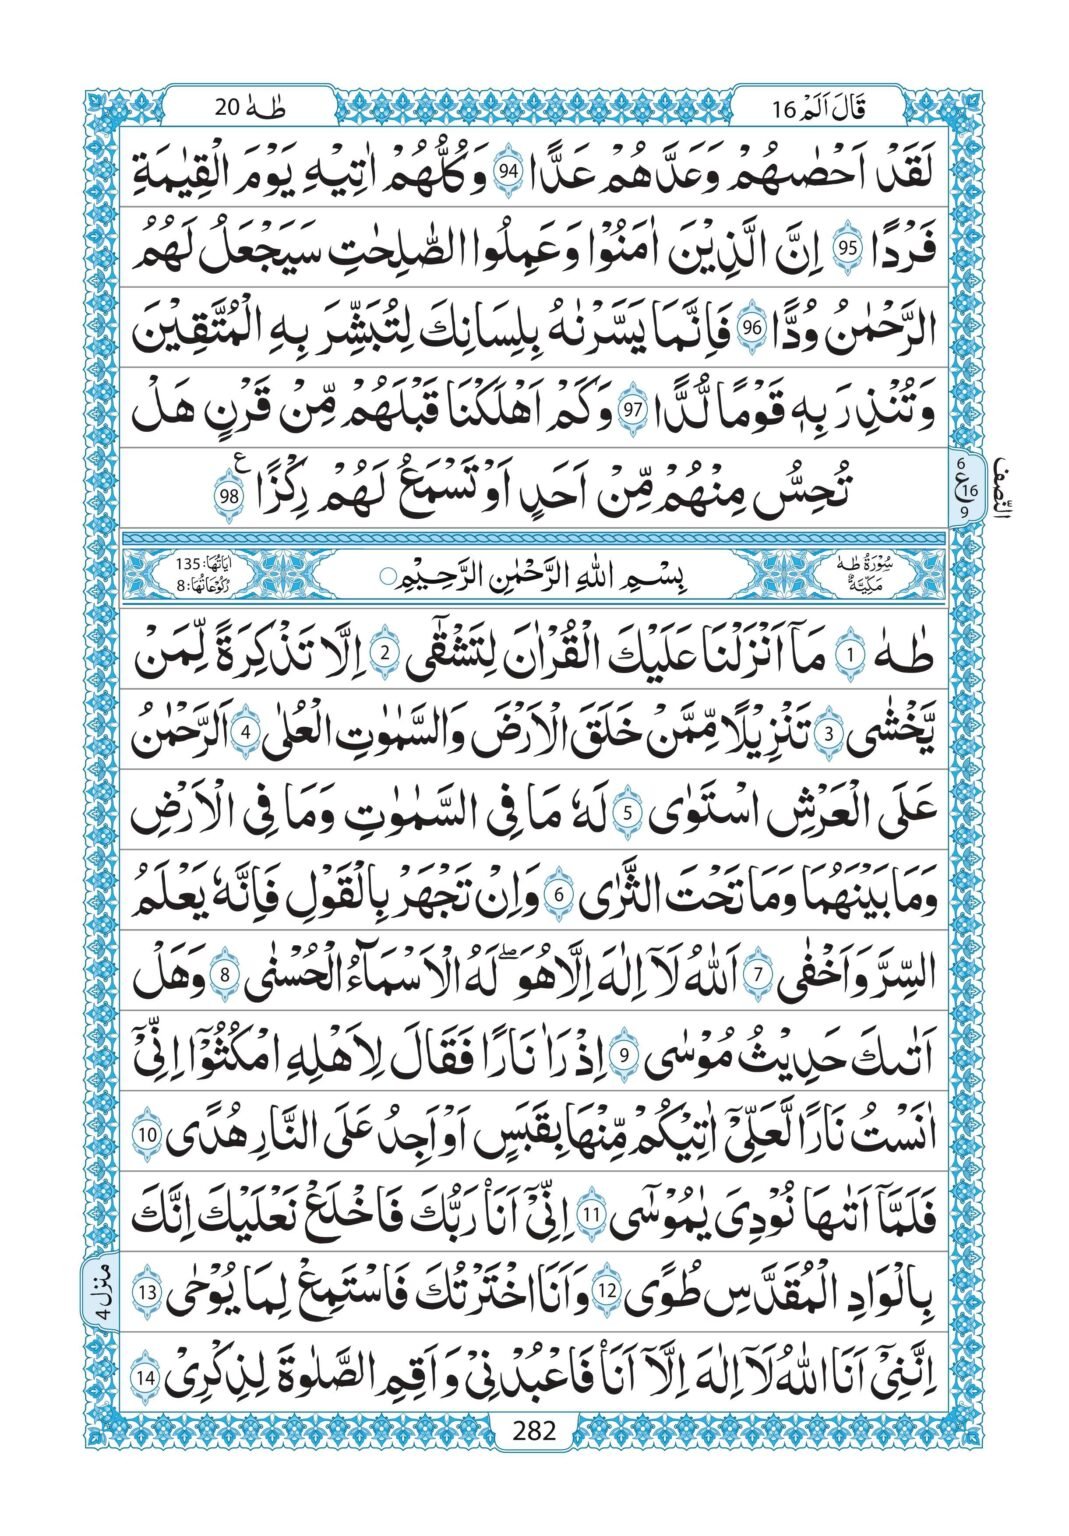 قَالَ اَلَمْ 16
طٰهٰ 20
لَقَدْ اَحْصٰىهُمْ وَعَدَّهُمْ عَدًّا 94 وَكُلُّهُمْ اٰتِيْهِ يَوْمَ الْقِيٰمَةِ
فَرْدًا 95 اِنَّ الَّذِيْنَ اٰمَنُوْا وَعَمِلُوا الصّٰلِحٰتِ سَيَجْعَلُ لَهُمُ
الرَّحْمٰنُ وُدًّا 96 فَاِنَّمَا يَسَّرْنٰهُ بِلِسَانِكَ لِتُبَشِّرَ بِهِ الْمُتَّقِيْنَ
وَتُنْذِرَ بِهٖ قَوْمًا لُّدًّا 97 وَكَمْ اَهْلَكْنَا قَبْلَهُمْ مِّنْ قَرْنٍ هَلْ
تُحِسُّ مِنْهُمْ مِّنْ اَحَدٍ اَوْ تَسْمَعُ لَهُمْ رِكْزًا 98 ع
6
ع 16
9
النّصف
سُوْرَةُ طٰهٰ
مَكِّيَّةٌ
بِسْمِ اللّٰهِ الرَّحْمٰنِ الرَّحِيْمِ
اٰيَاتُهَا: 135
رُكُوْعَاتُهَا: 8
طٰهٰ 1 مَاۤ اَنْزَلْنَا عَلَيْكَ الْقُرْاٰنَ لِتَشْقٰۤى 2 اِلَّا تَذْكِرَةً لِّمَنْ
يَّخْشٰى 3 تَنْزِيْلًا مِّمَّنْ خَلَقَ الْاَرْضَ وَالسَّمٰوٰتِ الْعُلٰى 4 اَلرَّحْمٰنُ
عَلَى الْعَرْشِ اسْتَوٰى 5 لَهٗ مَا فِى السَّمٰوٰتِ وَمَا فِى الْاَرْضِ
وَمَا بَيْنَهُمَا وَمَا تَحْتَ الثَّرٰى 6 وَاِنْ تَجْهَرْ بِالْقَوْلِ فَاِنَّهٗ يَعْلَمُ
السِّرَّ وَاَخْفٰى 7 اَللّٰهُ لَاۤ اِلٰهَ اِلَّا هُوَ ۖ لَهُ الْاَسْمَآءُ الْحُسْنٰى 8 وَهَلْ
اَتٰىكَ حَدِيْثُ مُوْسٰى 9 اِذْ رَاٰ نَارًا فَقَالَ لِاَهْلِهِ امْكُثُوْۤا اِنِّىْۤ
اٰنَسْتُ نَارًا لَّعَلِّىْۤ اٰتِيْكُمْ مِّنْهَا بِقَبَسٍ اَوْ اَجِدُ عَلَى النَّارِ هُدًى 10
فَلَمَّاۤ اَتٰىهَا نُوْدِىَ يٰمُوْسٰۤى 11 اِنِّىْۤ اَنَا۠ رَبُّكَ فَاخْلَعْ نَعْلَيْكَ اِنَّكَ
بِالْوَادِ الْمُقَدَّسِ طُوًى 12 وَاَنَا اخْتَرْتُكَ فَاسْتَمِعْ لِمَا يُوْحٰى 13
اِنَّنِىْۤ اَنَا اللّٰهُ لَاۤ اِلٰهَ اِلَّاۤ اَنَا۠ فَاعْبُدْنِىْ وَاَقِمِ الصَّلٰوةَ لِذِكْرِىْ 14
منزل 4
282